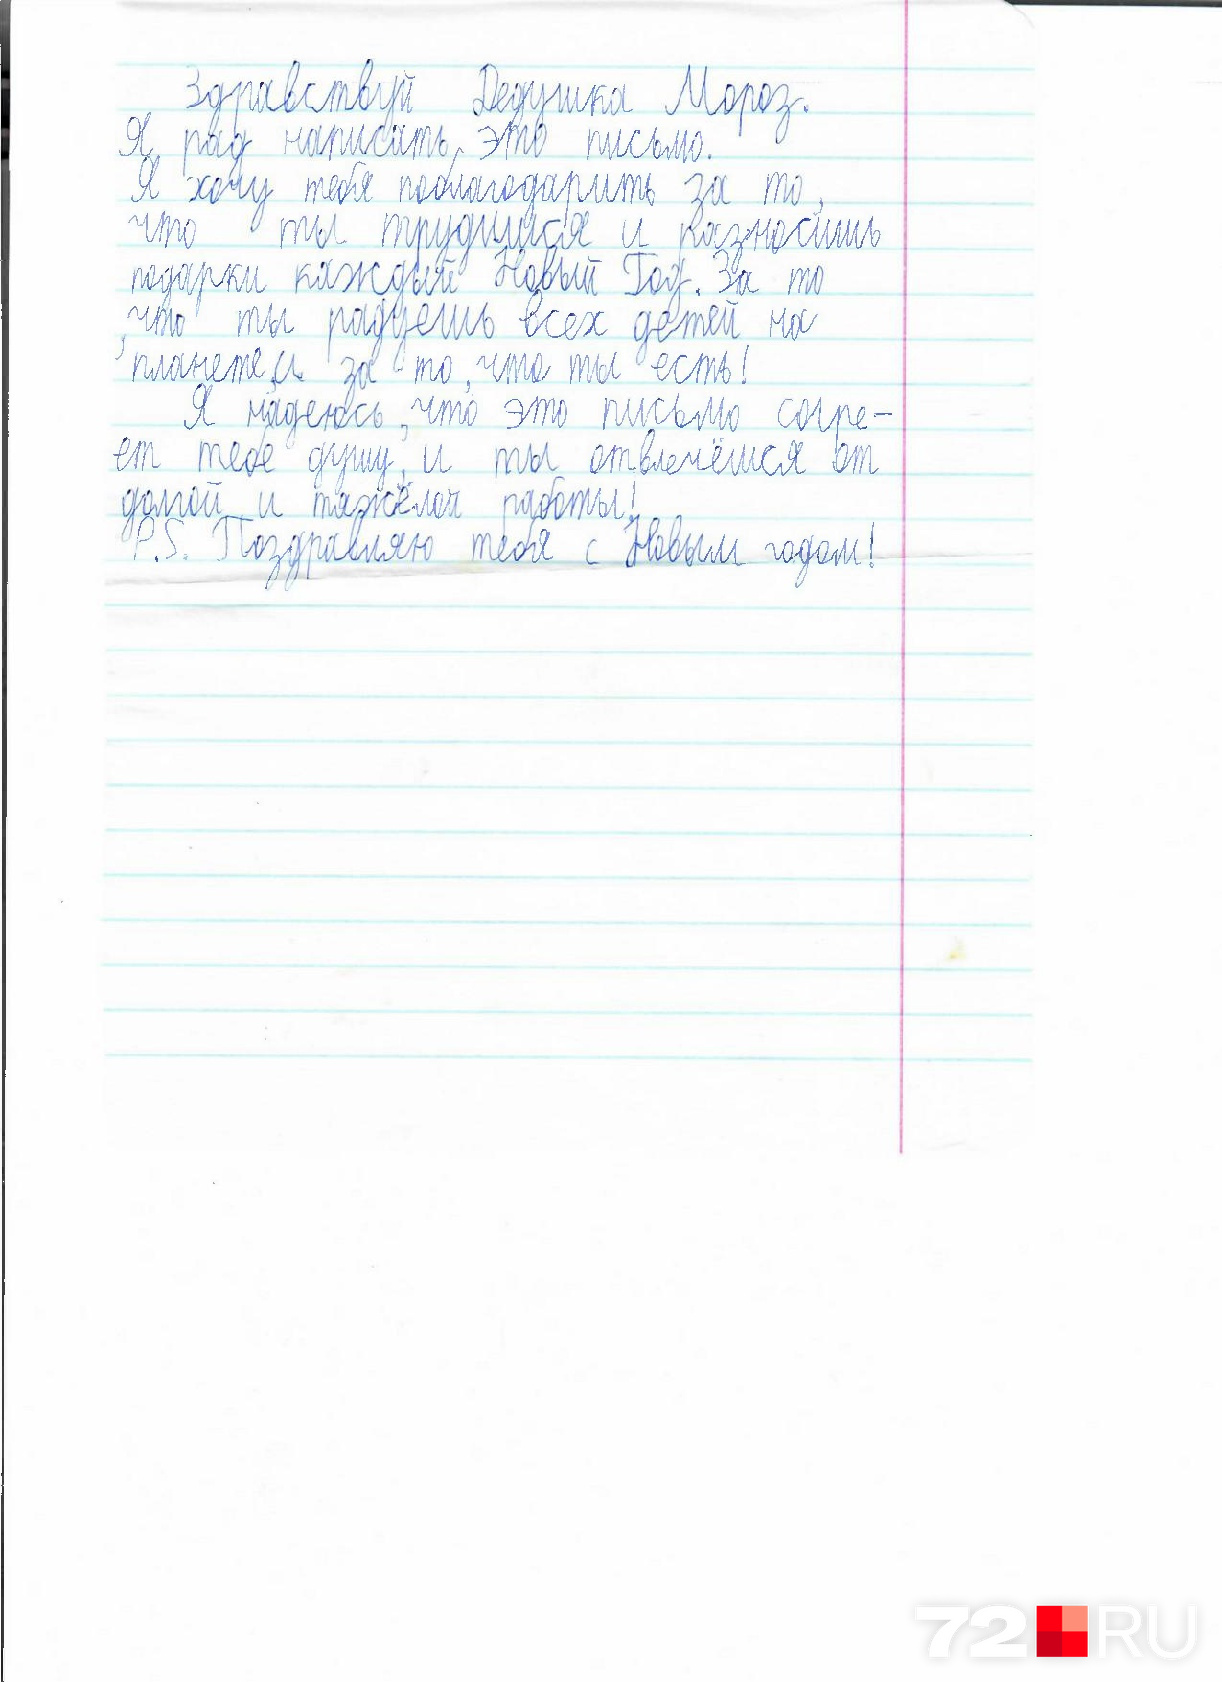 Здравствуй Дедушка Мороз.
Я рад написать это письмо.
Я хочу тебя поблагодарить за то,
что ты трудишся и разносишь
подарки каждый Новый Год. За то
, что ты радуешь всех детей на
планете, и за то, что ты есть!
Я надеюсь, что это письмо согре-
ет тебе душу, и ты отвлечёшся от
долгой и тяжёлой работы!
P.S. Поздравляю тебя с Новым годом!
72 RU